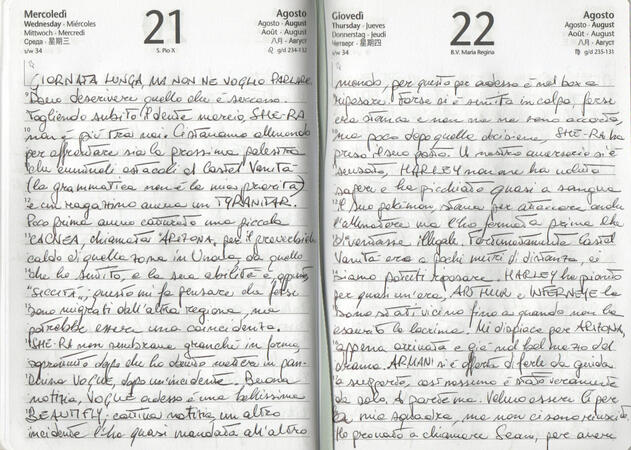 Mercoledì
Wednesday · Miércoles
Mittwoch · Mercredi
Среда · 星期三
v/w 34
21
S. Pio X
Agosto
Agosto · August
Août · August
八月 · Август
g/d 234-132
GIORNATA LUNGA, MA NON NE VOGLIO PARLARE.
Devo descrivere quello che è successo.
Togliendo subito il dente marcio, SHE-RA
non è più tra noi. Ci stavamo allenando
per affrontare sia la prossima palestra
che eventuali ostacoli a Castel Vanità
(la grammatica non è la mia priorità)
e un ragazzino aveva un TYRANITAR.
Poco prima avevo catturato una piccola
CACNEA, chiamata ARIZONA, per il proverbiale
caldo di quella zona in Unova, da quello
che ho sentito, e la sua abilità è appunto
"SICCITÀ"; questo mi fa pensare che forse
sono migrati dall'altra regione, ma
potrebbe essere una coincidenza.
SHE-RA non sembrava granché in forma,
soprattutto dopo che ho dovuto mettere in pan-
china VOGUE, dopo un'incidente. Buona
notizia, VOGUE adesso è una bellissima
BEAUTIFLY; cattiva notizia, un altro
incidente l'ho quasi mandata all'altro
Giovedì
Thursday · Jueves
Donnerstag · Jeudi
Четверг · 星期四
v/w 34
22
B.V. Maria Regina
Agosto
Agosto · August
Août · August
八月 · Август
g/d 235-131
mondo, per questo per adesso è nel box a
riposare. Forse si è sentita in colpa, forse
era stanca e non me ne sono accorto,
ma poco dopo quella decisione, SHE-RA ha
preso il suo posto. Il nostro avversario si è
scusato, HARLEY non ne ha voluto
sapere e ha picchiato quasi a sangue
il suo pokémon, stava per attaccare anche
l'allenatore ma l'ho fermata prima che
diventasse illegale. Fortunatamente Castel
Vanità era a pochi metri di distanza, ci
siamo potuti riposare. HARLEY ha pianto
per quasi un'ora, ARTHUR e INFERNEYE le
sono stati vicino fino a quando non ha
esaurito le lacrime. Mi dispiace per ARIZONA,
appena arrivata e già nel bel mezzo del
drama. ARMANI si è offerto di farle da guida
e supporto, così nessuno è stato veramente
da solo. A parte me. Volevo esserci per
la mia squadra, ma non ci sono riuscito.
Ho provato a chiamare Sean, per avere